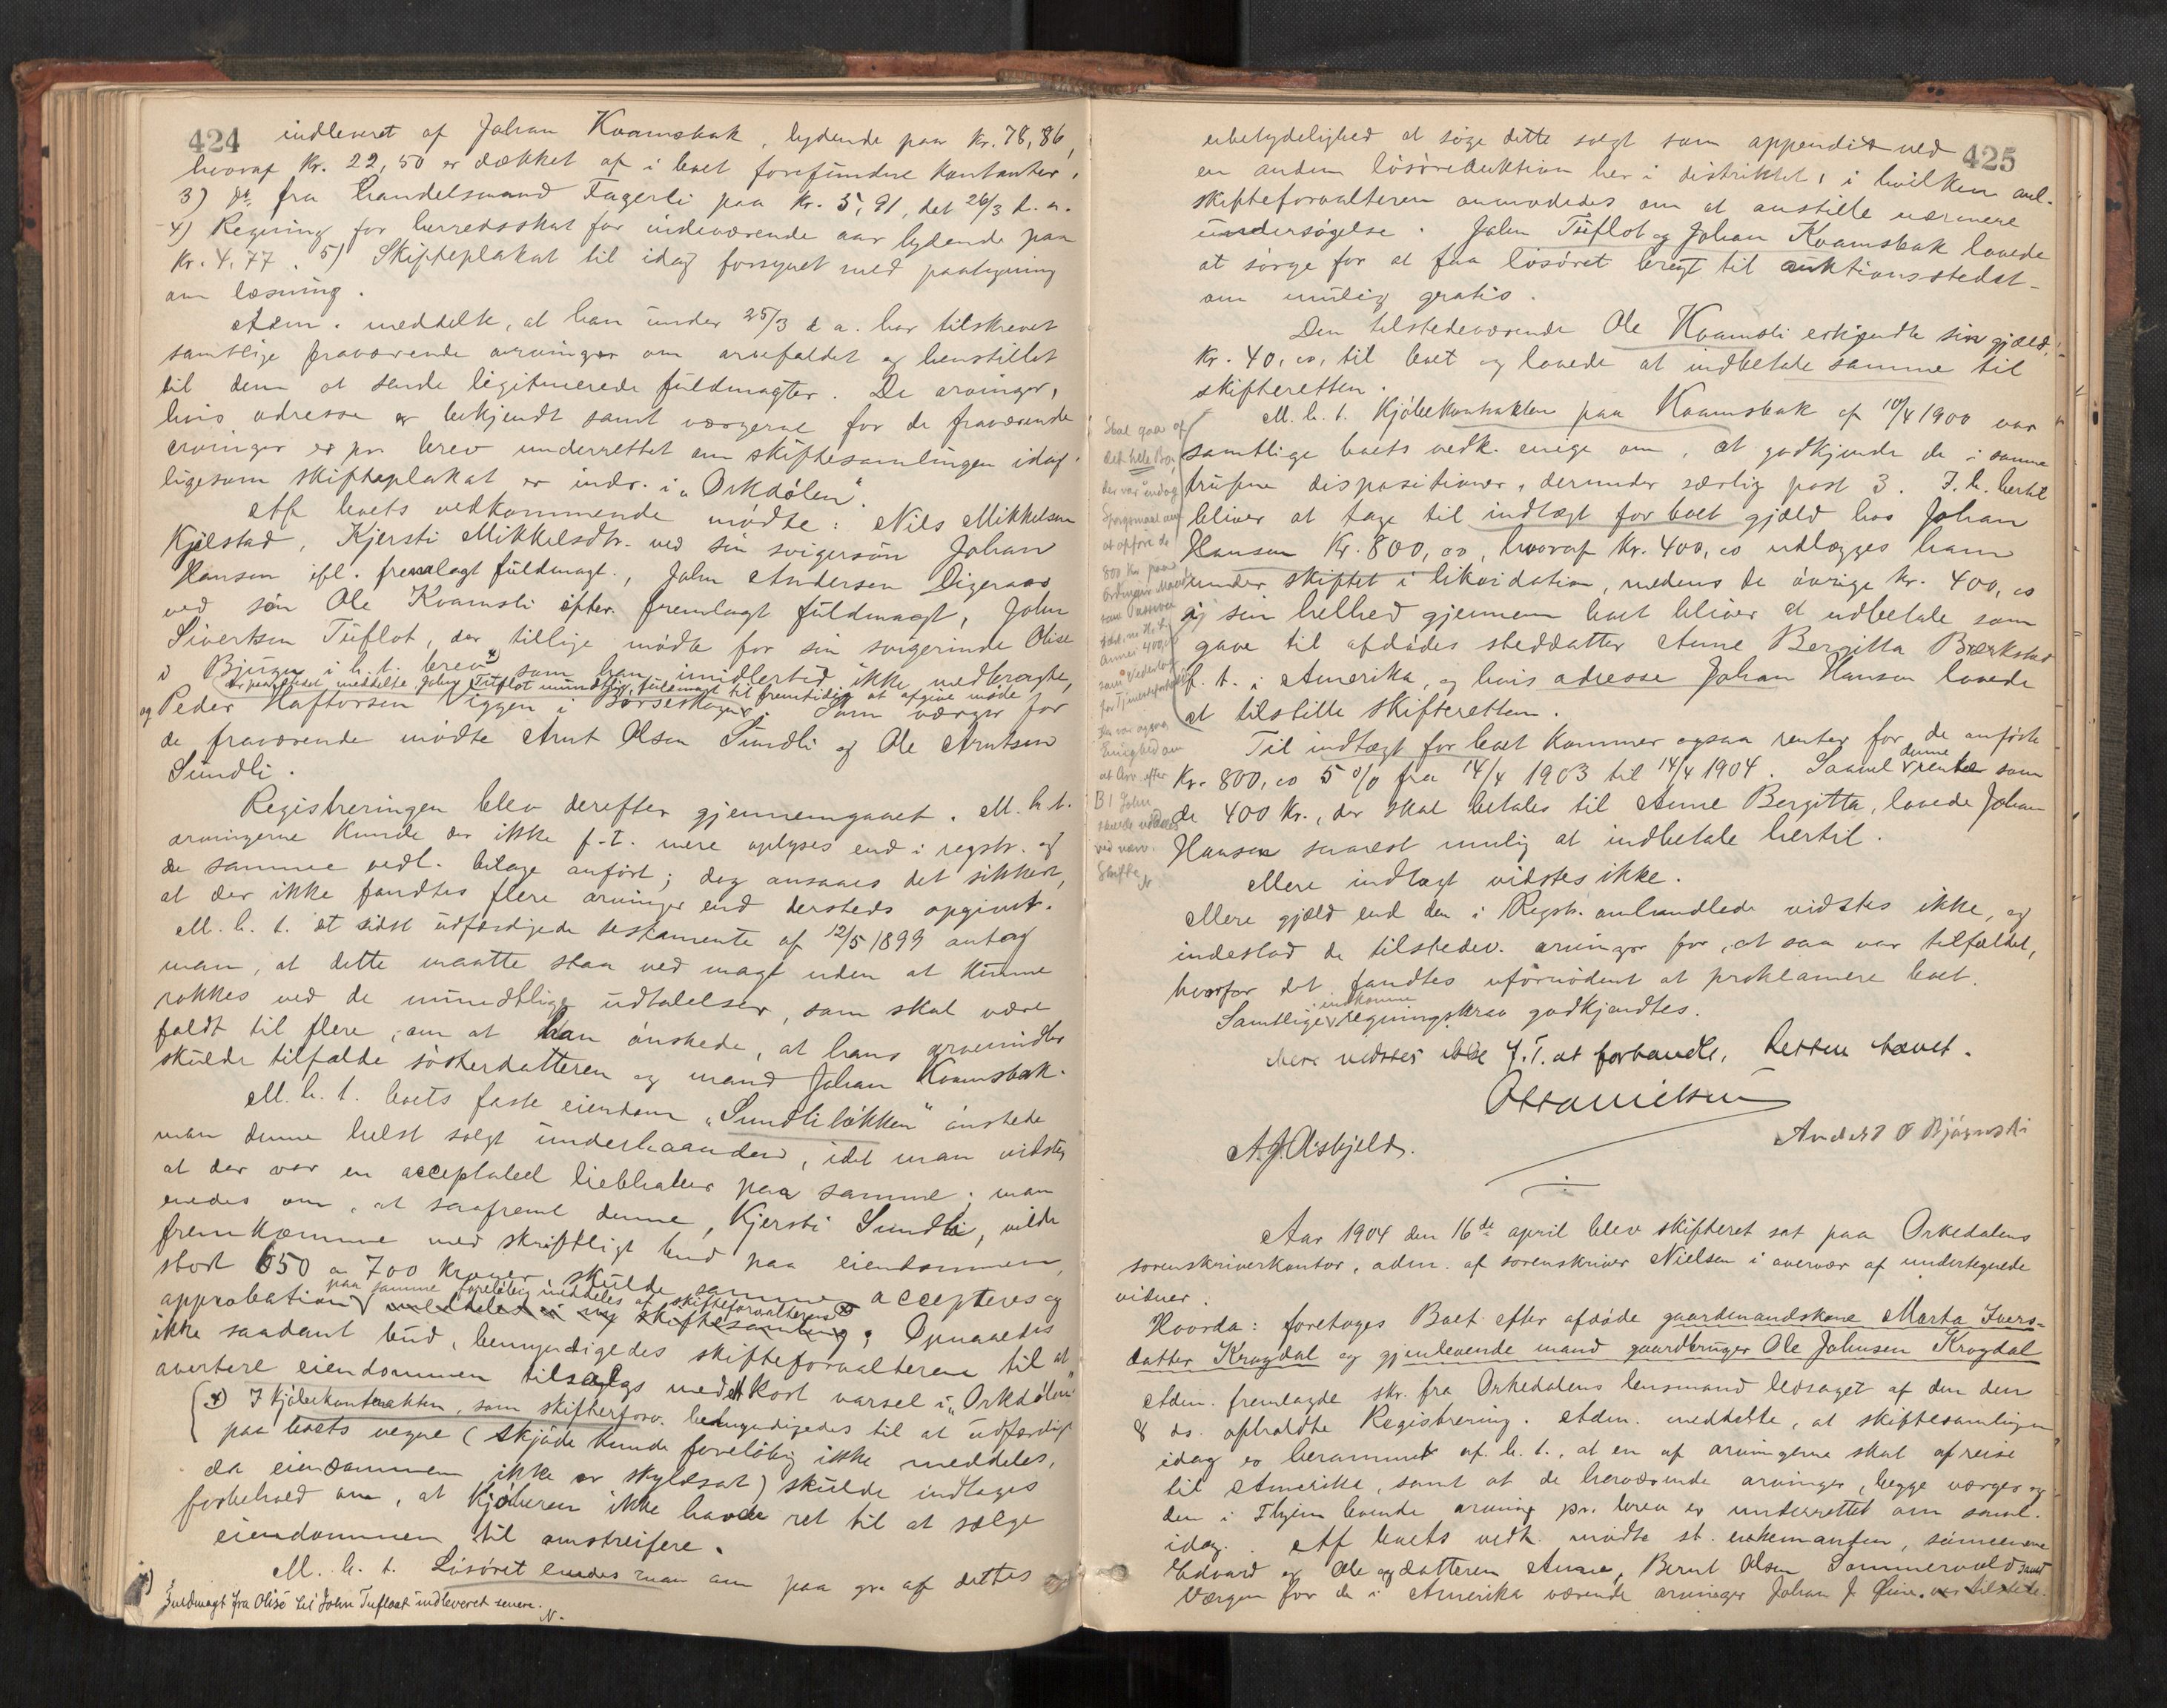 424
indleveret af Johan Kvamsbak, lydende paa Kr. 78,86,
hvoraf Kr. 22,50 er dækket af i boet forefundne kontanter,
3) Do fra handelsmand Fagerli paa Kr. 5,91, dat 26/3 d. a.
4) Regning for herredsskat for indeværende aar lydende paa
Kr. 4.77. 5) Skifteplakat til idag forsynet med paategning
om læsning.
Adm. meddelte, at han under 25/3 d. a. har tilskrevet
samtlige fraværende arvinger om arvefaldet og henstillet
til dem at sende legitimerede fuldmagter. De arvinger,
hvis adresse er bekjendt samt værgerne for de fraværende
arvinger er pr. brev underrettet om skiftesamlingen idag
ligesom skifteplakat er indr. i "Orkdølen".
Af boets vedkommende mødte: Nils Mikkelsen
Kjelstad, Kjersti Mikkelsdtr. ved sin svigersøn Johan
Hansen ifl. fremlagt fuldmagt., John Andersen Digeraas
ved søn Ole Kvamsli efter fremlagt fuldmagt, John
Sivertsen Tuflot, der tillige mødte for sin svigerinde Olise
i Bjugn i h. t. brev x) som han imidlertid ikke medbragte,
meddelte John Tuflot mundtlig fuldmagt til fremtidig at afgive møde
og Peder Haftorsen Viggen i Børseskogn. Som værger for
de fraværende mødte Arnt Olsen Sundli og Ole Arntsen
Sundli.
Registreringen blev derefter gjennemgaaet. M. h. t.
arvingerne kunde der ikke f. t. mere oplyses end i regstr. og
de samme vedl. bilage anført; dog ansaaes det sikkert,
at der ikke fandtes flere arvinger end dersteds opgivet.
M. h. t. et sidst udfærdigede testamente af 12/5 1899 antog
man, at dette maatte staa ved magt uden at kunne
rokkes ved de mundtlige udtalelser, som skal være
faldt til flere, om at han ønskede, at hans arvemidler
skulde tilfalde søsterdatteren og mand Johan Kvamsbak.
M. h. t. boets faste eiendom "Sundliløkken" ønskede
man denne helst solgt underhaanden, idet man vidste,
at der var en acceptabel liebhaber paa samme; man
enedes om, at saafremt denne, Kjersti Sundli, vilde
fremkomme med skriftligt bud paa eiendommen,
stort 650 a 700 kroner, skulde samme accepteres og
paa samme foreløbig meddeles af skifteforvalteren x)
approbation meddeles i ny skiftesamling; Opnaaedes
ikke saadant bud, bemyndigedes skifteforvalteren til at
avertere eiendommen tilsalgs med kort varsel i "Orkdølen"
x) I kjøbekontrakten, som skifteforv. bemyndigedes til at udfærdige
paa boets vegne (skjøde kunde foreløbig ikke meddeles,
da eiendommen ikke er skyldsat) skulde indtages
forbehold om, at kjøberen ikke havde ret til at sælge
eiendommen til omstreifere.
M. h. t. Løsøret enedes man om paa gr. af dettes
x) Fuldmagt fra Olise til John Tufloat indleveret senere.
N.
425
ubetydelighed at søge dette solgt som appendix ved
en anden løsøreauktion her i distriktet, i hvilken anl.
skifteforvalteren anmodedes om at anstille nærmere
undersøgelse. John Tuflot og Johan Kvamsbak lovede
at sørge for at faa løsøret bragt til auktionsstedet
om mulig gratis.
Den tilstedeværende Ole Kvamsli erkjendte sin gjæld,
Kr. 40,00, til boet og lovede at indbetale samme til
skifteretten.
M. h. t. Kjøbekontrakten paa Kvamsbak af 10/4 1900 var
samtlige boets vedk. enige om, at godkjende de i samme
trufne dispositioner, derunder særlig post 3. I. h. hertil
bliver at tage til indtægt for boet gjæld hos Johan
Hansen Kr. 800,00, hvoraf Kr. 400,00 udlægges ham
under skiftet i likvidation, medens de øvrige Kr. 400,00
i sin helhed gjennem boet bliver at udbetale som
gave til afdødes steddatter Anne Bergitta Brækstad
f. t. i Amerika, og hvis adresse Johan Hansen lovede
at tilstille skifteretten.
Skal gaa af
det hele Bo,
der var indog
Spørgsmaal om
at opføre de
800 Kr paa
som Passiva
400,00
som Vederlag
for
Der var ogsaa
Enighed om
at Arv. efter
B 1 John
skulde
ved nærv.
Skifte
N
Til indtægt for boet kommer ogsaa renter for de anførte
Kr. 800,00 5 % fra 14/4 1903 til 14/4 1904. Saavel denne rente som
de 400 Kr., der skal betales til Anne Bergitta, lovede Johan
Hansen snarest mulig at indbetale hertil.
Mere indtægt vidstes ikke.
Mere gjæld end den i Regstr. omhandlede vidstes ikke, og
indestod de tilstedev. arvinger for, at saa var tilfældet,
hvorfor det fandtes ufornødent at proklamere boet.
Samtlige indkomne regningskrav godkjendtes.
Mere vidstes ikke f. T. at forhandle. Retten hævet.
Otto Nielsen
A. J. Asbjeld.
Anders O Bjørnsli
Aar 1904 den 16de april blev skifteret sat paa Orkedalens
sorenskriverkontor, adm. af sorenskriver Nielsen i overvær af undertegnede
vidner.
Hvorda: foretages Boet efter afdøde gaardmandskone Marta Ivers-
datter Krogdal og gjenlevende mand gaardbruger Ole Johnsen Krogdal
Adm. fremlagde skr. fra Orkedalens lensmand ledsaget af den den
8 ds. afholdte Registrering. Adm. meddelte, at skiftesamlingen
idag er berammet af h. t., at en af arvingerne skal afreise
til Amerika, samt at de herværende arvinger, begge værger og
den i Thjem boende arving pr. brev er underrettet om saml.
idag. Af boets vedk. mødte st. enkemanden, sønnerne
Edvard og Ole og datteren Anne, Bernt Olsen Sommervold samt
Værgen for de i Amerika værende arvinger Johan J. Øien. var tilstede.